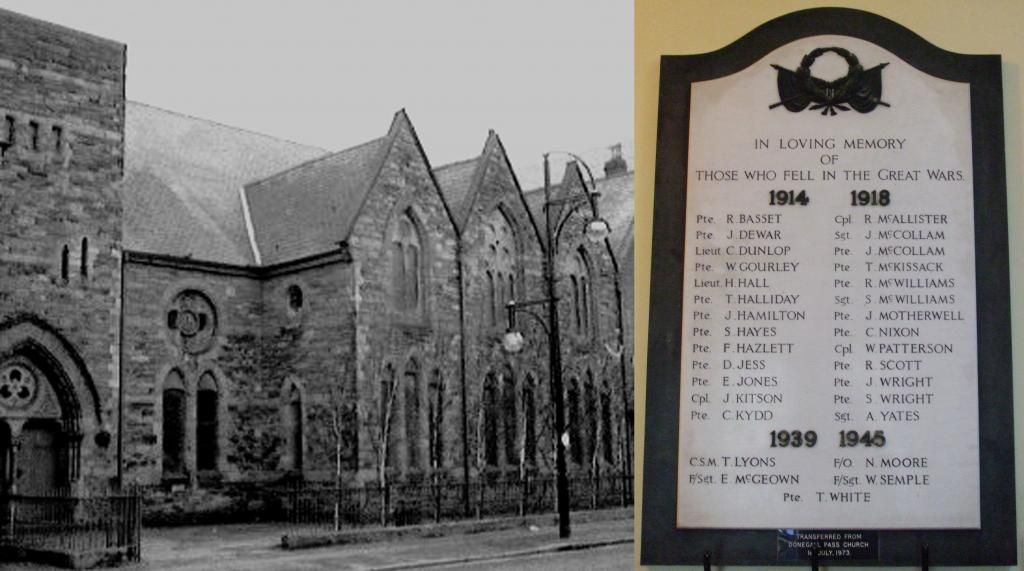 IN LOVING MEMORY
OF
THOSE WHO FELL IN THE GREAT WARS.
1914 1918
Pte. R. BASSET Cpl. R. McALLISTER
Pte. J. DEWAR Sgt. J. McCOLLAM
Lieut. C. DUNLOP Pte. J. McCOLLAM
Pte. W. GOURLEY Pte. T. McKISSACK
Lieut. H. HALL Pte. R. McWILLIAMS
Pte. T. HALLIDAY Sgt. S. McWILLIAMS
Pte. J. HAMILTON Pte. J. MOTHERWELL
Pte. S. HAYES Pte. C. NIXON
Pte. F. HAZLETT Cpl. W. PATTERSON
Pte. D. JESS Pte. R. SCOTT
Pte. E. JONES Pte. J. WRIGHT
Cpl. J. KITSON Pte. S. WRIGHT
Pte. C. KYDD Sgt. A. YATES
1939 1945
C.S.M. T. LYONS F/O. N. MOORE
F/Sgt. E. McGEOWN F/Sgt. W. SEMPLE
Pte. T. WHITE
TRANSFERRED FROM
DONEGALL PASS CHURCH
JULY, 1973.